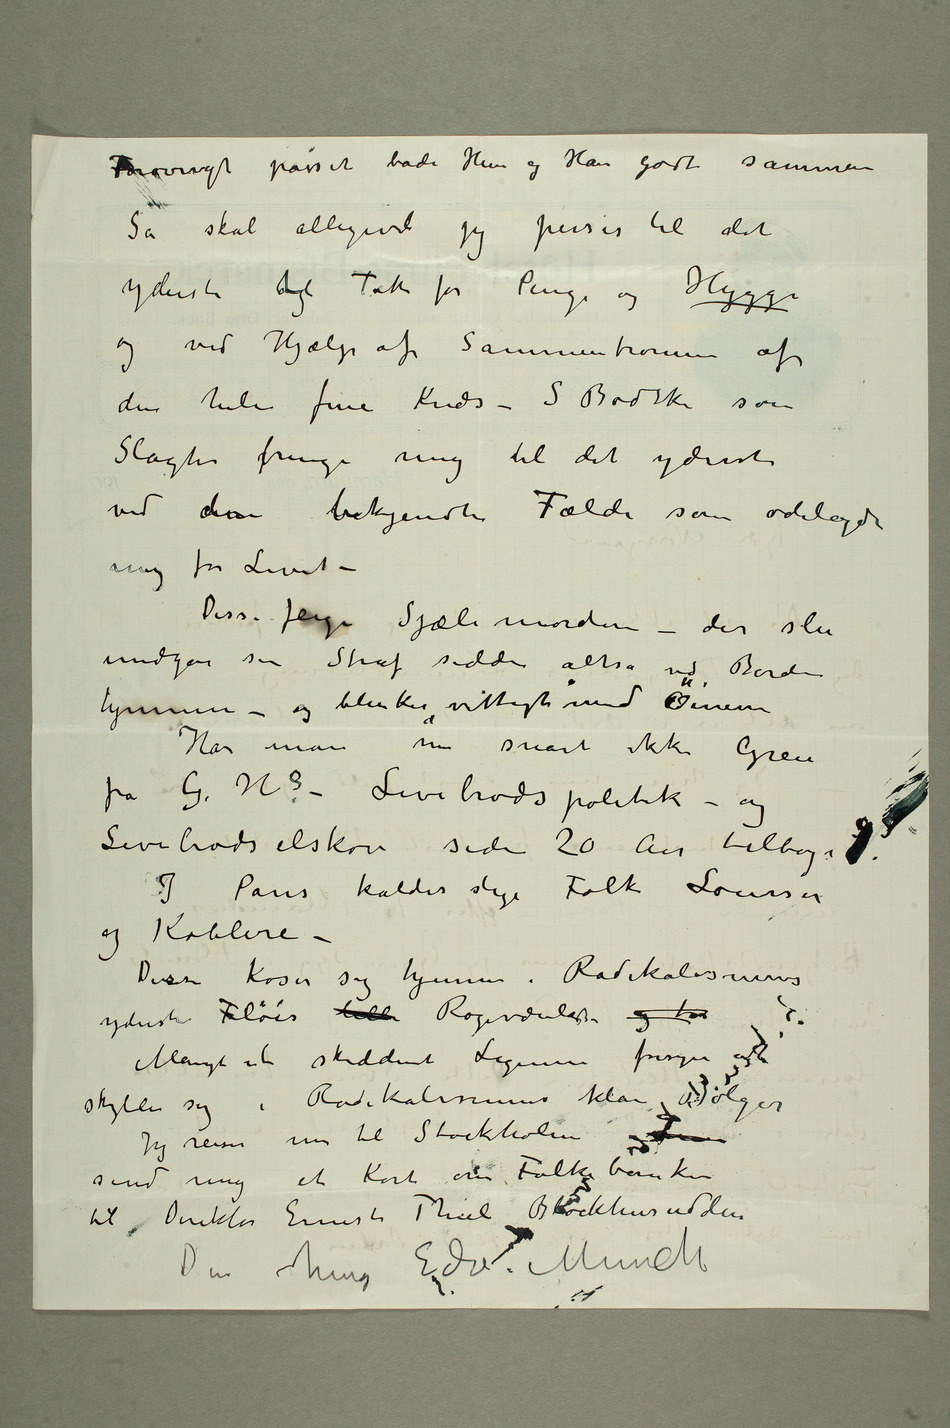 Forøvrigt passet både Hun og Han godt sammen
Så skal alligevel jeg pines til det
yderste Tak for Penge og Hygge
og ved Hjælp af Sammentrommen af
den hele fine Kreds – S Bødtker som
Slagter tvinge mig til det yderste
ved den bekjendte Fælde som ødelagde
mig for Livet –
Disse feige Sjælemordere – der slu
undgår sin Straf sidder altså ved Bordene
hjemme – og blinker vittigt med Øinene
Har man nu snart ikke Greie
på G. Hs – Levebrødspolitik – og
Levebrødselskov siden 20 Aar tilbage.
I Paris kaldes slige Folk Lousser
og Koblere –
Disse koser sig hjemme i Radikalismens
yderste Fløis Røgværelse
Mangt et skiddent Legeme forsøger at
skylle sig i Radikalismens klare Bølger
Jeg reiser nu til Stockholm
send mig et Kort om Folkebanken
til Direktør Ernest Thiel Blockhusudden
Din heng Edv. Munch